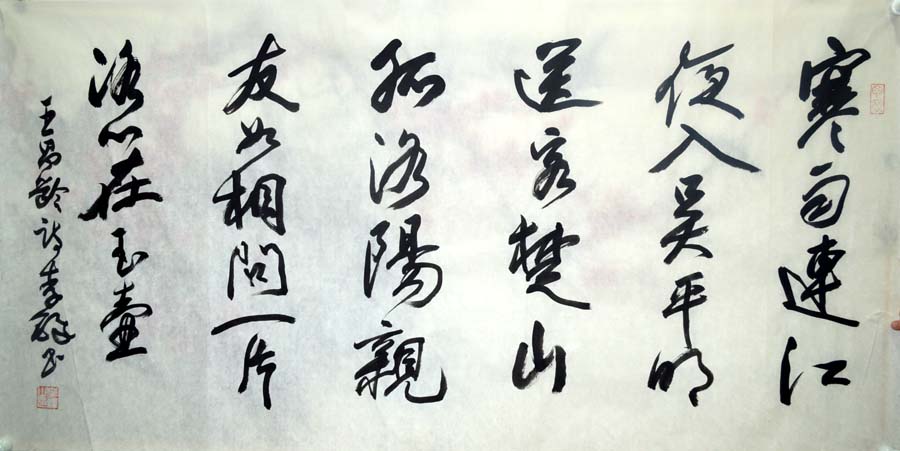 寒雨連江
夜入吴平明
送客楚山
孤洛陽親
友如相問一片
洛心在玉壺
王昌齡詩李书